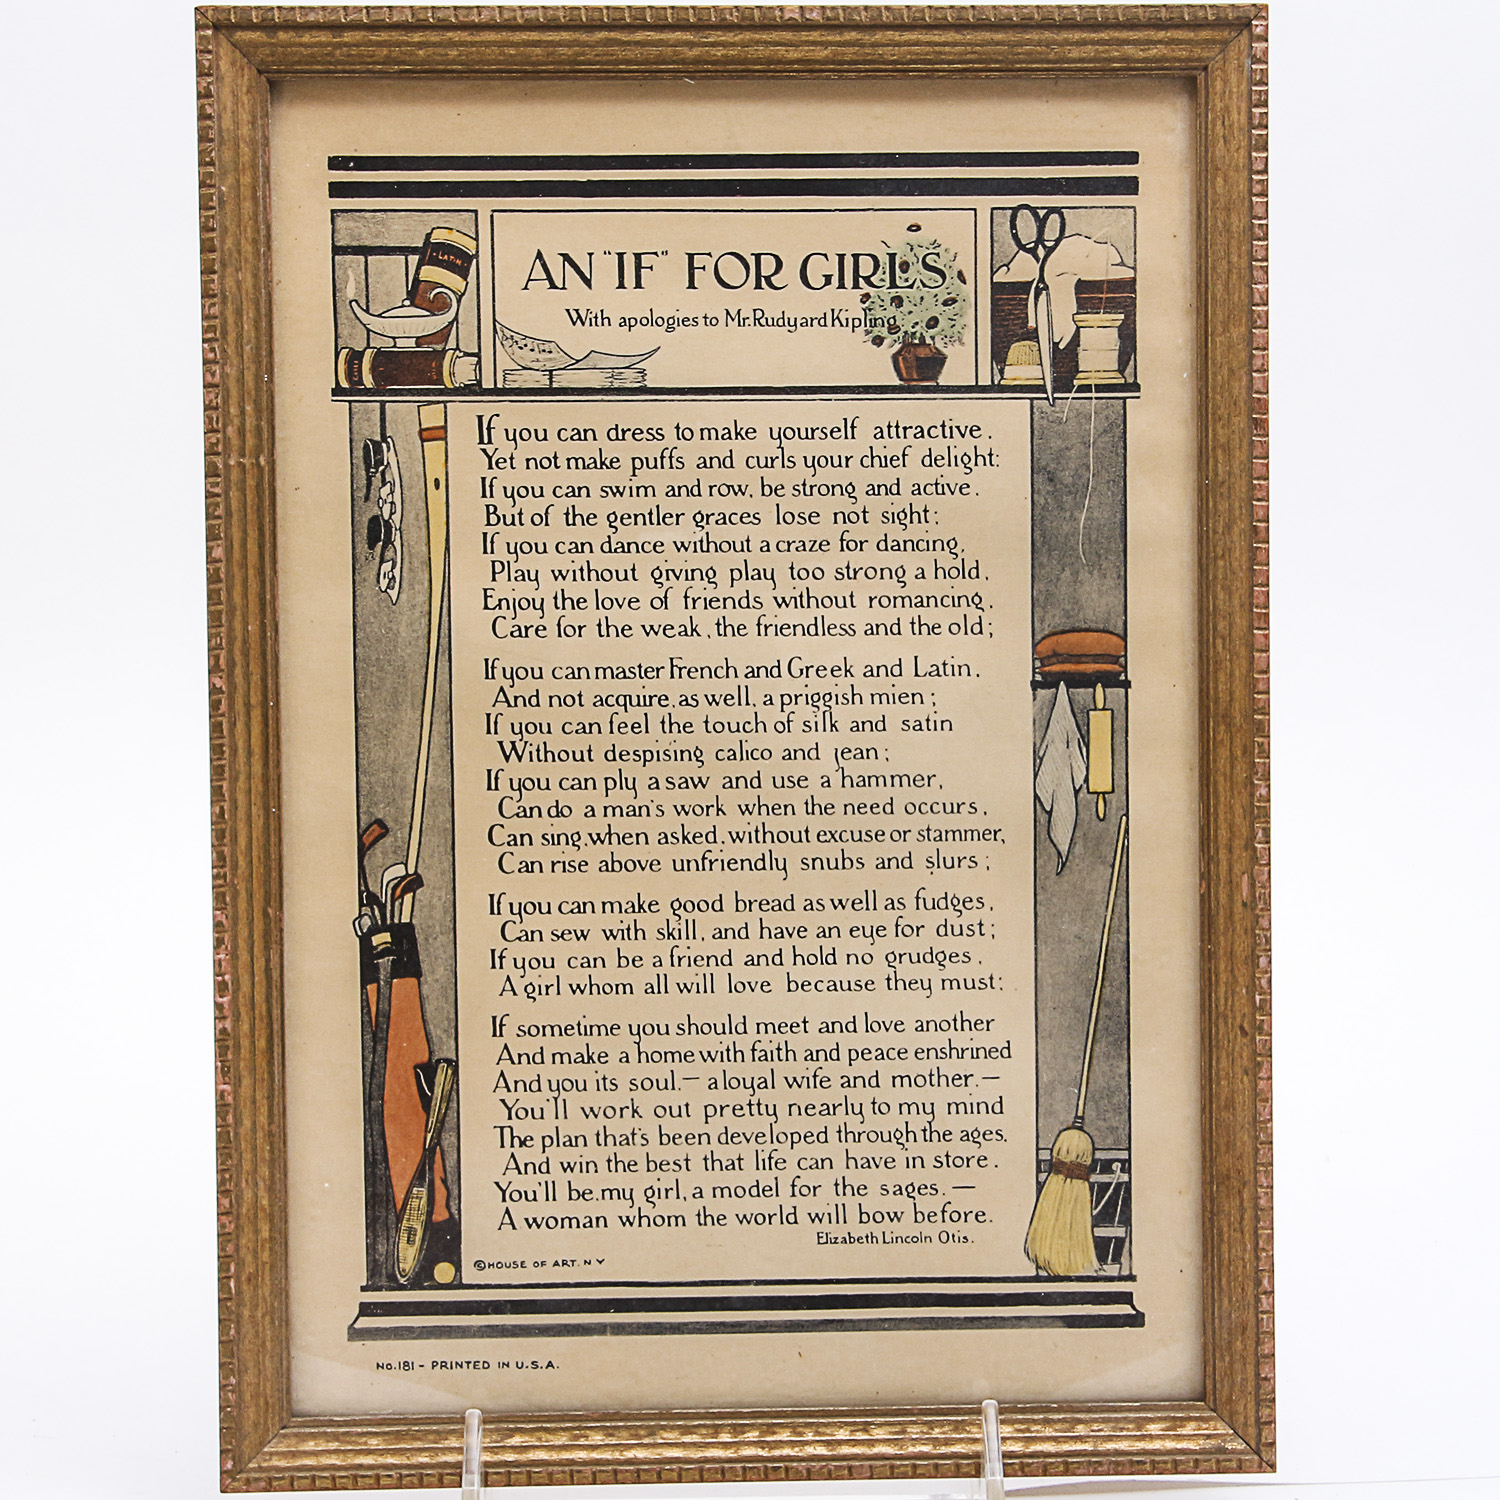 LATIN
AN "IF" FOR GIRLS
With apologies to Mr. Rudyard Kipling
If you can dress to make yourself attractive,
Yet not make puffs and curls your chief delight:
If you can swim and row, be strong and active,
But of the gentler graces lose not sight:
If you can dance without a craze for dancing,
Play without giving play too strong a hold,
Enjoy the love of friends without romancing,
Care for the weak, the friendless and the old;
If you can master French and Greek and Latin,
And not acquire, as well, a priggish mien;
If you can feel the touch of silk and satin
Without despising calico and jean;
If you can ply a saw and use a hammer,
Can do a man's work when the need occurs,
Can sing, when asked, without excuse or stammer,
Can rise above unfriendly snubs and slurs;
If you can make good bread as well as fudges,
Can sew with skill, and have an eye for dust;
If you can be a friend and hold no grudges,
A girl whom all will love because they must:
If sometime you should meet and love another
And make a home with faith and peace enshrined
And you its soul,— a loyal wife and mother,—
You'll work out pretty nearly to my mind
The plan that's been developed through the ages,
And win the best that life can have in store.
You'll be, my girl, a model for the sages,—
A woman whom the world will bow before.
Elizabeth Lincoln Otis.
©HOUSE OF ART. N Y
No.181 - PRINTED IN U.S.A.